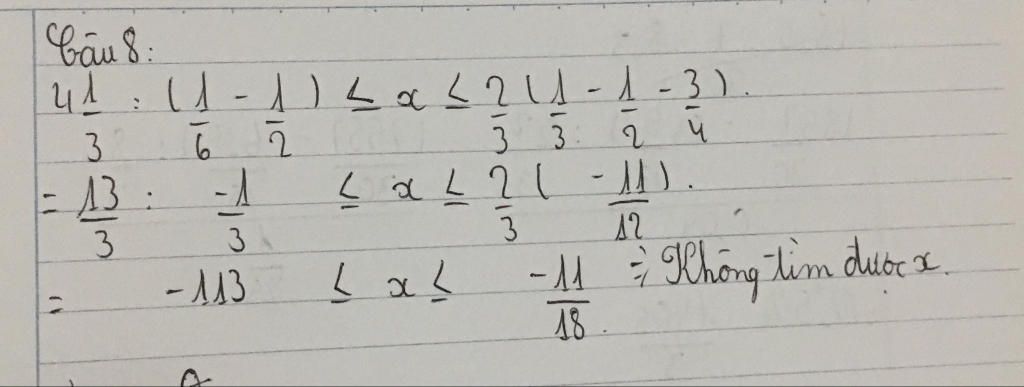 Câu 8:
4 1/3 : (1/6 - 1/2) ≤ x ≤ 2/3 (1/3 - 1/2 - 3/4).
= 13/3 : -1/3 ≤ x ≤ 2/3 ( -11/12 ).
= -113 ≤ x ≤ -11/18 ⇒ Không tìm được x.